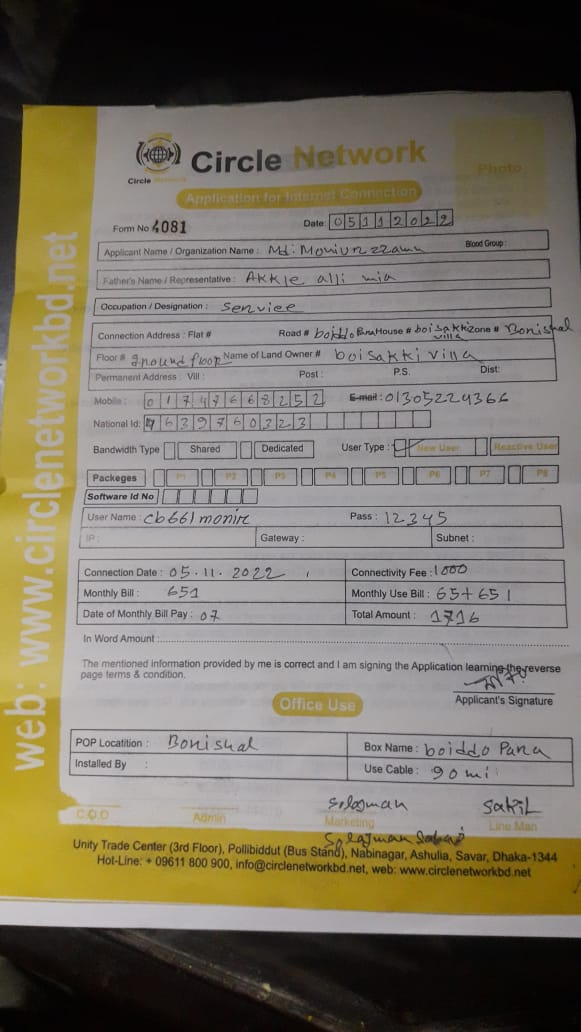 web: www.circlenetworkbd.net
Circle Network
Circle Network
Photo
Application for Internet Connection
Form No 4081
Date: 05112022
Applicant Name / Organization Name : Md: Moniunzzamn
Blood Group :
Father's Name / Representative : Akkle alli mia
Occupation / Designation : Senviee
Connection Address : Flat # Road # boiddo Para House # boisakki villa Zone # Bonishal
Floor # ground floor Name of Land Owner # boisakki villa
Permanent Address : Vill : Post : P.S. Dist:
Mobile : 01747668252 E-mail : 01305224366
National Id: 7639760323
Bandwidth Type Shared Dedicated User Type : New User Reactive User
Packeges P1 P2 P3 P4 P5 P6 P7 P8
Software Id No
User Name : cb661monire Pass : 12345
IP : Gateway : Subnet :
Connection Date : 05.11.2022 Connectivity Fee : 1000
Monthly Bill : 651 Monthly Use Bill : 65+651
Date of Monthly Bill Pay : 07 Total Amount : 1716
In Word Amount :
The mentioned information provided by me is correct and I am signing the Application learning the reverse
page terms & condition.
Applicant's Signature
Office Use
POP Locatition : Bonishal Box Name : boiddo Para
Installed By : Use Cable : 90 mi
Solajman Sakil
C.O.O Admin Marketing Line Man
Solajman
Unity Trade Center (3rd Floor), Pollibiddut (Bus Stand), Nabinagar, Ashulia, Savar, Dhaka-1344
Hot-Line: + 09611 800 900, info@circlenetworkbd.net, web: www.circlenetworkbd.net